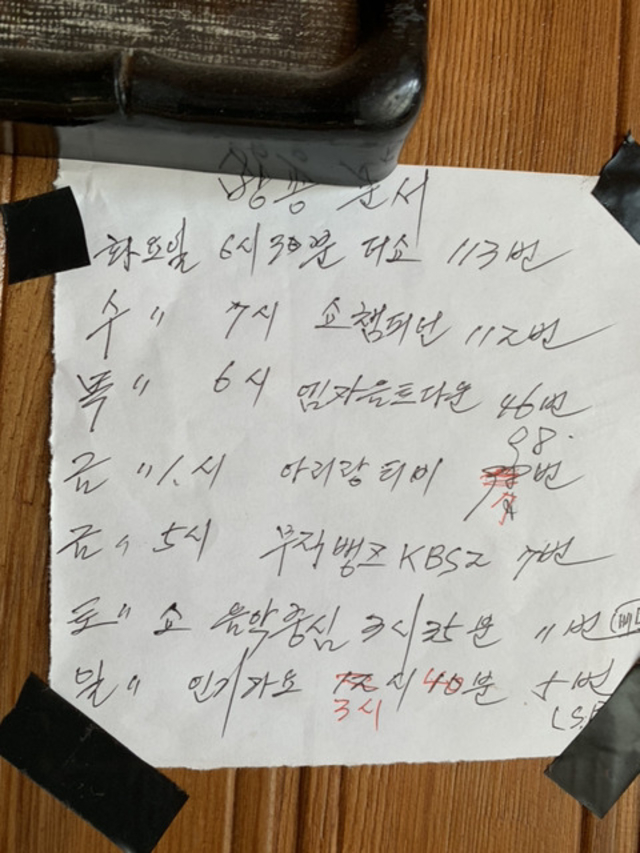 방송 순서
화요일 6시 30분 더쇼 113번
수 〃 7시 쇼챔피언 112번
목 〃 6시 엠자음트다운 46번
98.
금 〃 1.시 아리랑 티비 번
금 〃 5시 무직뱅크 KBS2 7번
토 〃 쇼 음악중심 3시 35분 11번
일 〃 인기가요 시 40분 5번
3시